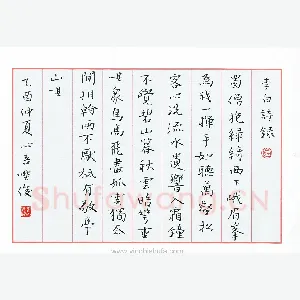 李白詩錄
蜀僧抱綠綺西下峨眉峯
為我一揮手如聽萬壑松
客心洗流水遺響入霜鐘
不覺碧山暮秋雲暗幾重
衆鳥高飛盡孤雲獨去
閒相看兩不厭只有敬亭
山
乙酉仲夏